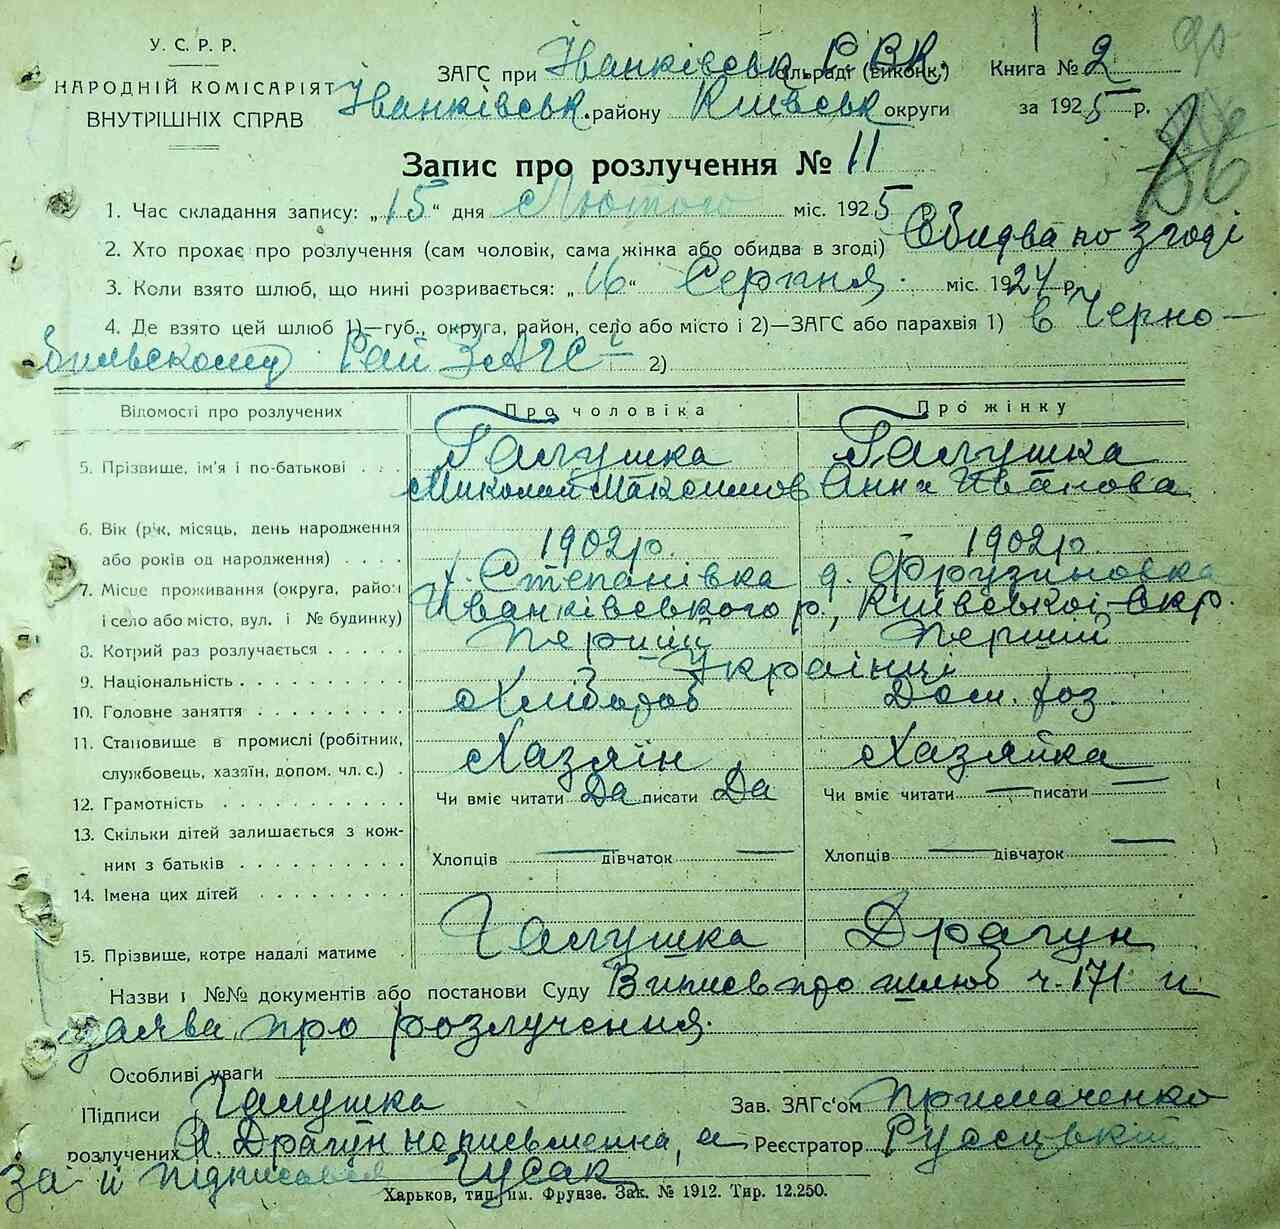 У. С. Р. Р.
НАРОДНІЙ КОМІСАРІЯТ
ВНУТРІШНІХ СПРАВ
ЗАГС при Іванківськ. РВК. сільраді (виконк.) Книга № 2
Іванківськ. району Київськ округи за 1925 р.
86
Запис про розлучення № 11
1. Час складання запису: „15“ дня Лютого міс. 1925 р.
2. Хто прохає про розлучення (сам чоловік, сама жінка або обидва в згоді) Обидва по згоді
3. Коли взято шлюб, що нині розривається: „16“ Серпня міс. 1924 р.
4. Де взято цей шлюб 1)—губ., округа, район, село або місто і 2)—ЗАГС або парахвія 1) в Чорно-
бильскому Рай ЗАГС-і 2)
Відомості про розлучених Про чоловіка Про жінку
5. Прізвище, ім'я і по-батькові Галушка Галушка
Миколай Максимов Анна Иванова
6. Вік (рік, місяць, день народження
або років од народження) 1902 р. 1902 р.
7. Місце проживання (округа, район х. Степанівка д. Фрузиновка
і село або місто, вул. і № будинку) Иванківського р., Київської Окр.
8. Котрий раз розлучається Перший Перший
9. Національність Українці
10. Головне заняття Хлібороб Дом. хоз.
11. Становище в промислі (робітник,
службовець, хазяїн, допом. чл. с.) Хазяїн Хазяйка
12. Грамотність Чи вміє читати Да писати Да Чи вміє читати — писати —
13. Скільки дітей залишається з кож-
ним з батьків Хлопців — дівчаток — Хлопців — дівчаток —
14. Імена цих дітей
15. Прізвище, котре надалі матиме Галушка Драгун
Назви і №№ документів або постанови Суду Випись про шлюб ч. 171 и
заява про розлучення.
Особливі уваги
Підписи Галушка Зав. ЗАГс'ом Примаченко
розлучених А. Драгун неписьменна, а Реєстратор
за її підписався Гусак
Харьков, тип. им. Фрунзе. Зак. № 1912. Тир. 12.250.